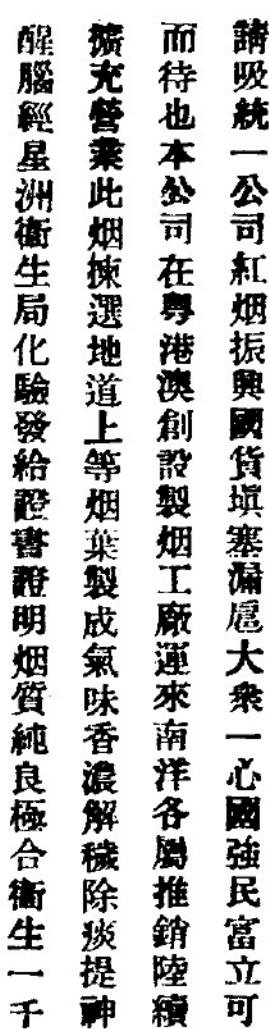 請吸統一公司紅烟振興國貨塡塞漏巵大衆一心國強民富立可
而待也本公司在粤港澳創設製烟工廠運來南洋各屬推銷陸續
擴充營業此烟揀選地道上等烟葉製成氣味香濃解穢除痰提神
醒腦經星洲衞生局化驗發給證書證明烟質純良極合衞生一千